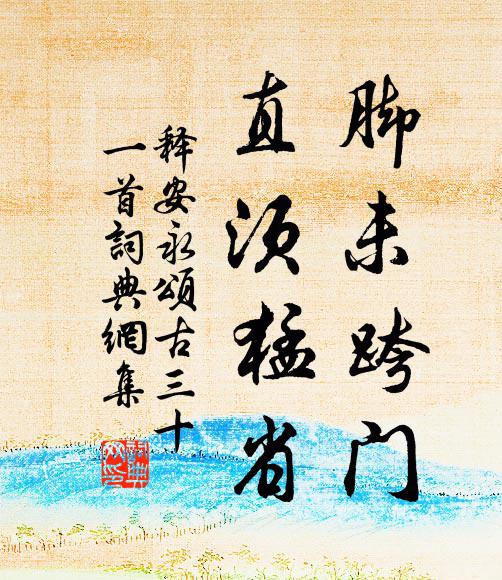 脚未跨门
直须猛省
释安永頌古三十
一首詞典網集